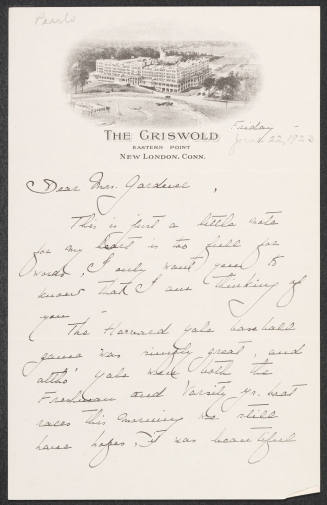 THE GRISWOLD
EASTERN POINT
NEW LONDON, CONN.
Friday -
June 22, 1923
Dear Mrs. Gardner,
This is just a little note
for my heart is too full for
words, I only want you to
know that I am thinking of
you -
The Harvard Yale baseball
game was simply great, and
altho' Yale won both the
Freshman and Varsity Jr. boat
races this morning we still
have hopes. It was beautiful